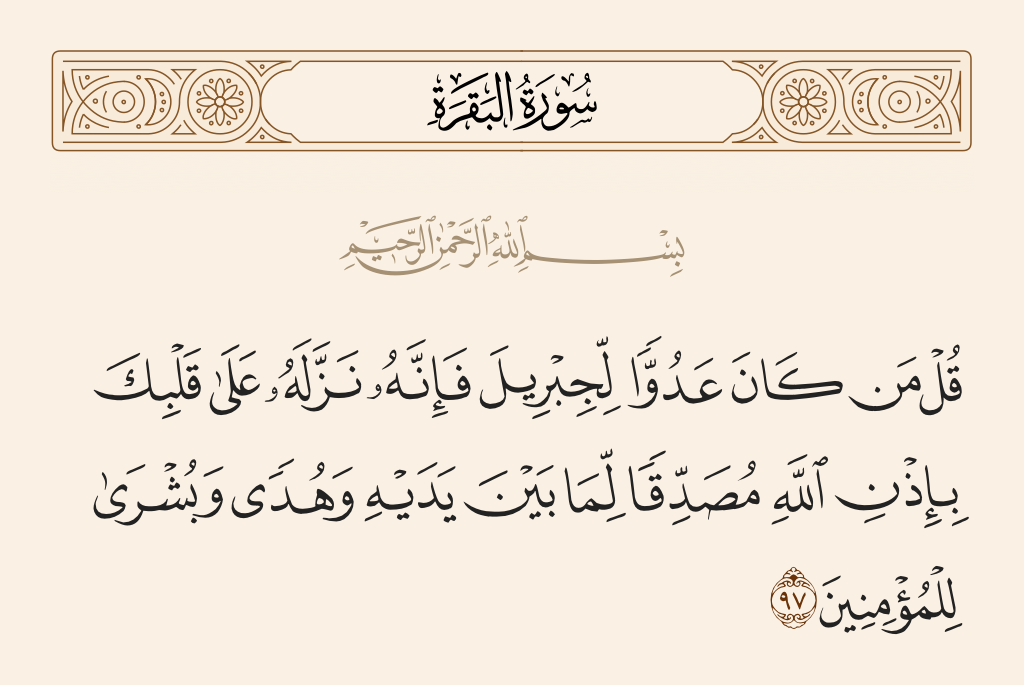 سُورَةُ البَقَرَةِ
بِسْمِ ٱللَّهِ ٱلرَّحْمَٰنِ ٱلرَّحِيمِ
قُلْ مَن كَانَ عَدُوًّا لِّجِبْرِيلَ فَإِنَّهُۥ نَزَّلَهُۥ عَلَىٰ قَلْبِكَ
بِإِذْنِ ٱللَّهِ مُصَدِّقًا لِّمَا بَيْنَ يَدَيْهِ وَهُدًى وَبُشْرَىٰ
لِلْمُؤْمِنِينَ ٩٧